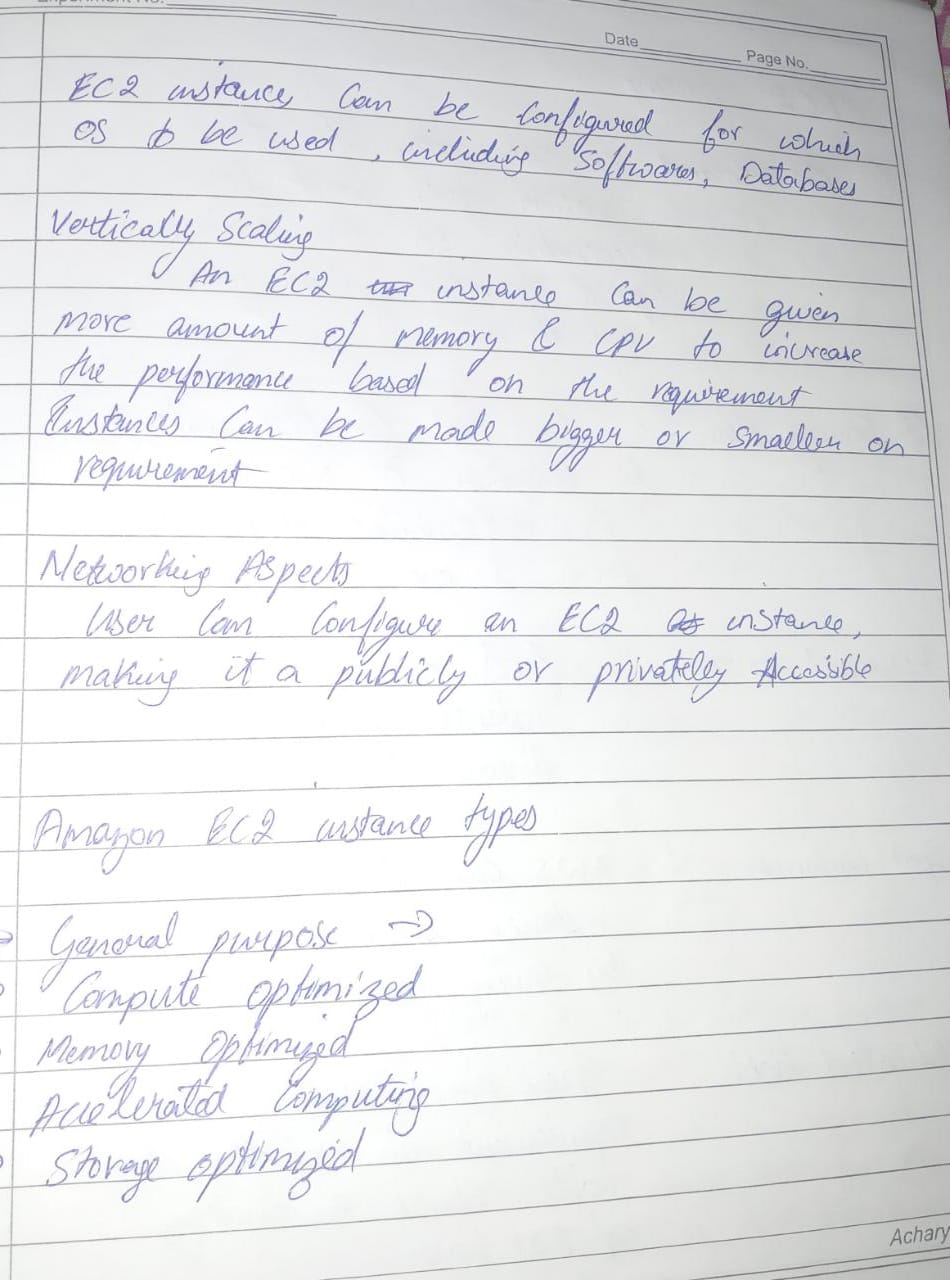 Experiment No.
Date
Page No.
EC2 instances can be configured for which
OS to be used, including Softwares, Databases
Vertically Scaling
An EC2 instance can be given
more amount of memory & CPU to increase
the performance based on the requirement
Instances can be made bigger or smaller on
requirement
Networking Aspects
User can configure an EC2 instance,
making it a publicly or privateley Accessible
Amazon EC2 instance types
General purpose →
Compute optimized
Memory optimized
Accelerated Computing
Storage optimized
Achary